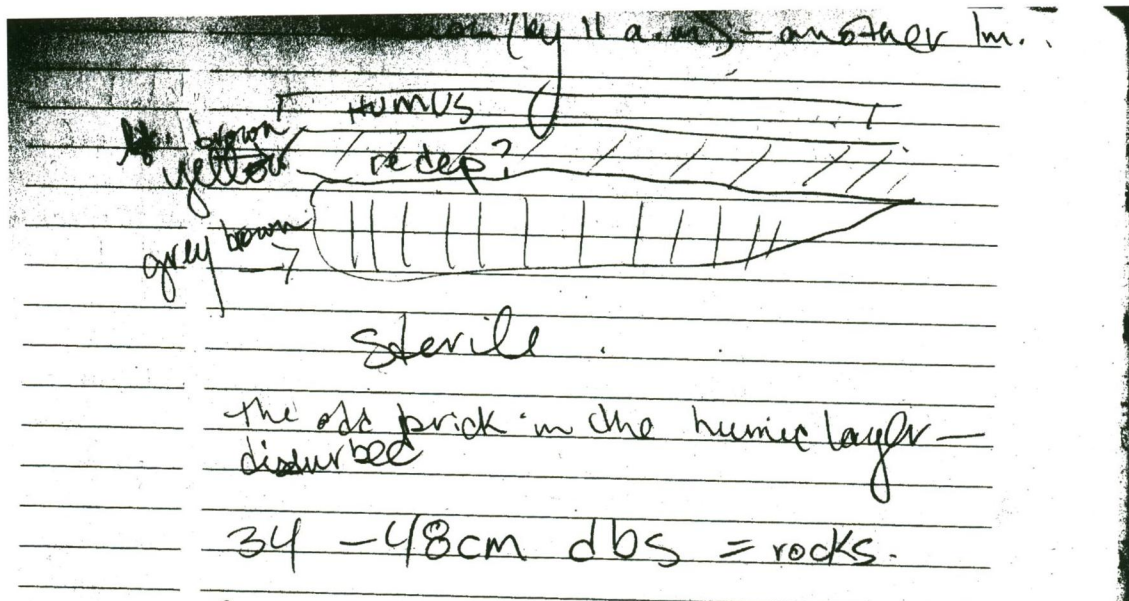 (by 11 a.m.) - another 1m.
Humus
brown
yellow
redep?
grey brown
Sterile
The odd brick in the humic layer -
disturbed
34 - 48cm dbs = rocks.